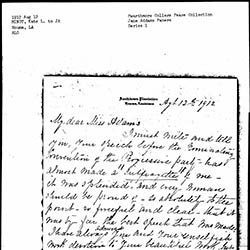 1912 Aug 12
MINOR, Kate L. to JA
Houma, LA
ALS
Swarthmore College Peace Collection
Jane Addams Papers
Series 1
Southdown Plantation
Houma, Louisiana
Agt 12th 1912
My dear Miss Addams
I must write and tell
you, your speech before the Nominating
Convention of the Progressive party - has
almost made a "Suffragette" of me -
it was splendid, and every woman
should be proud of - so absolutely to the
point - so forceful and clear - that it
was by far the best speech that was made
I have always
work devotion to your beautiful work